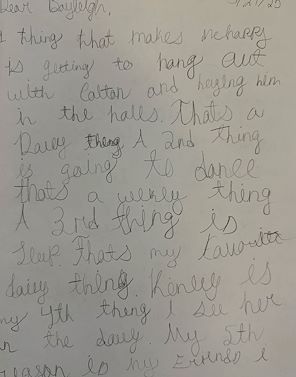 Dear Bayleigh,
1 thing that makes me happy
is getting to hang out
with Colton and haging him
in the halls. Thats a
Daiey thing A 2nd thing
is going to dance
thats a wekly thing
A 3rd thing is
Sleep. Thats my favorite
daiey thing. Kenley is
my 4th thing I see her
in the daiey. My 5th
reason is my friends I